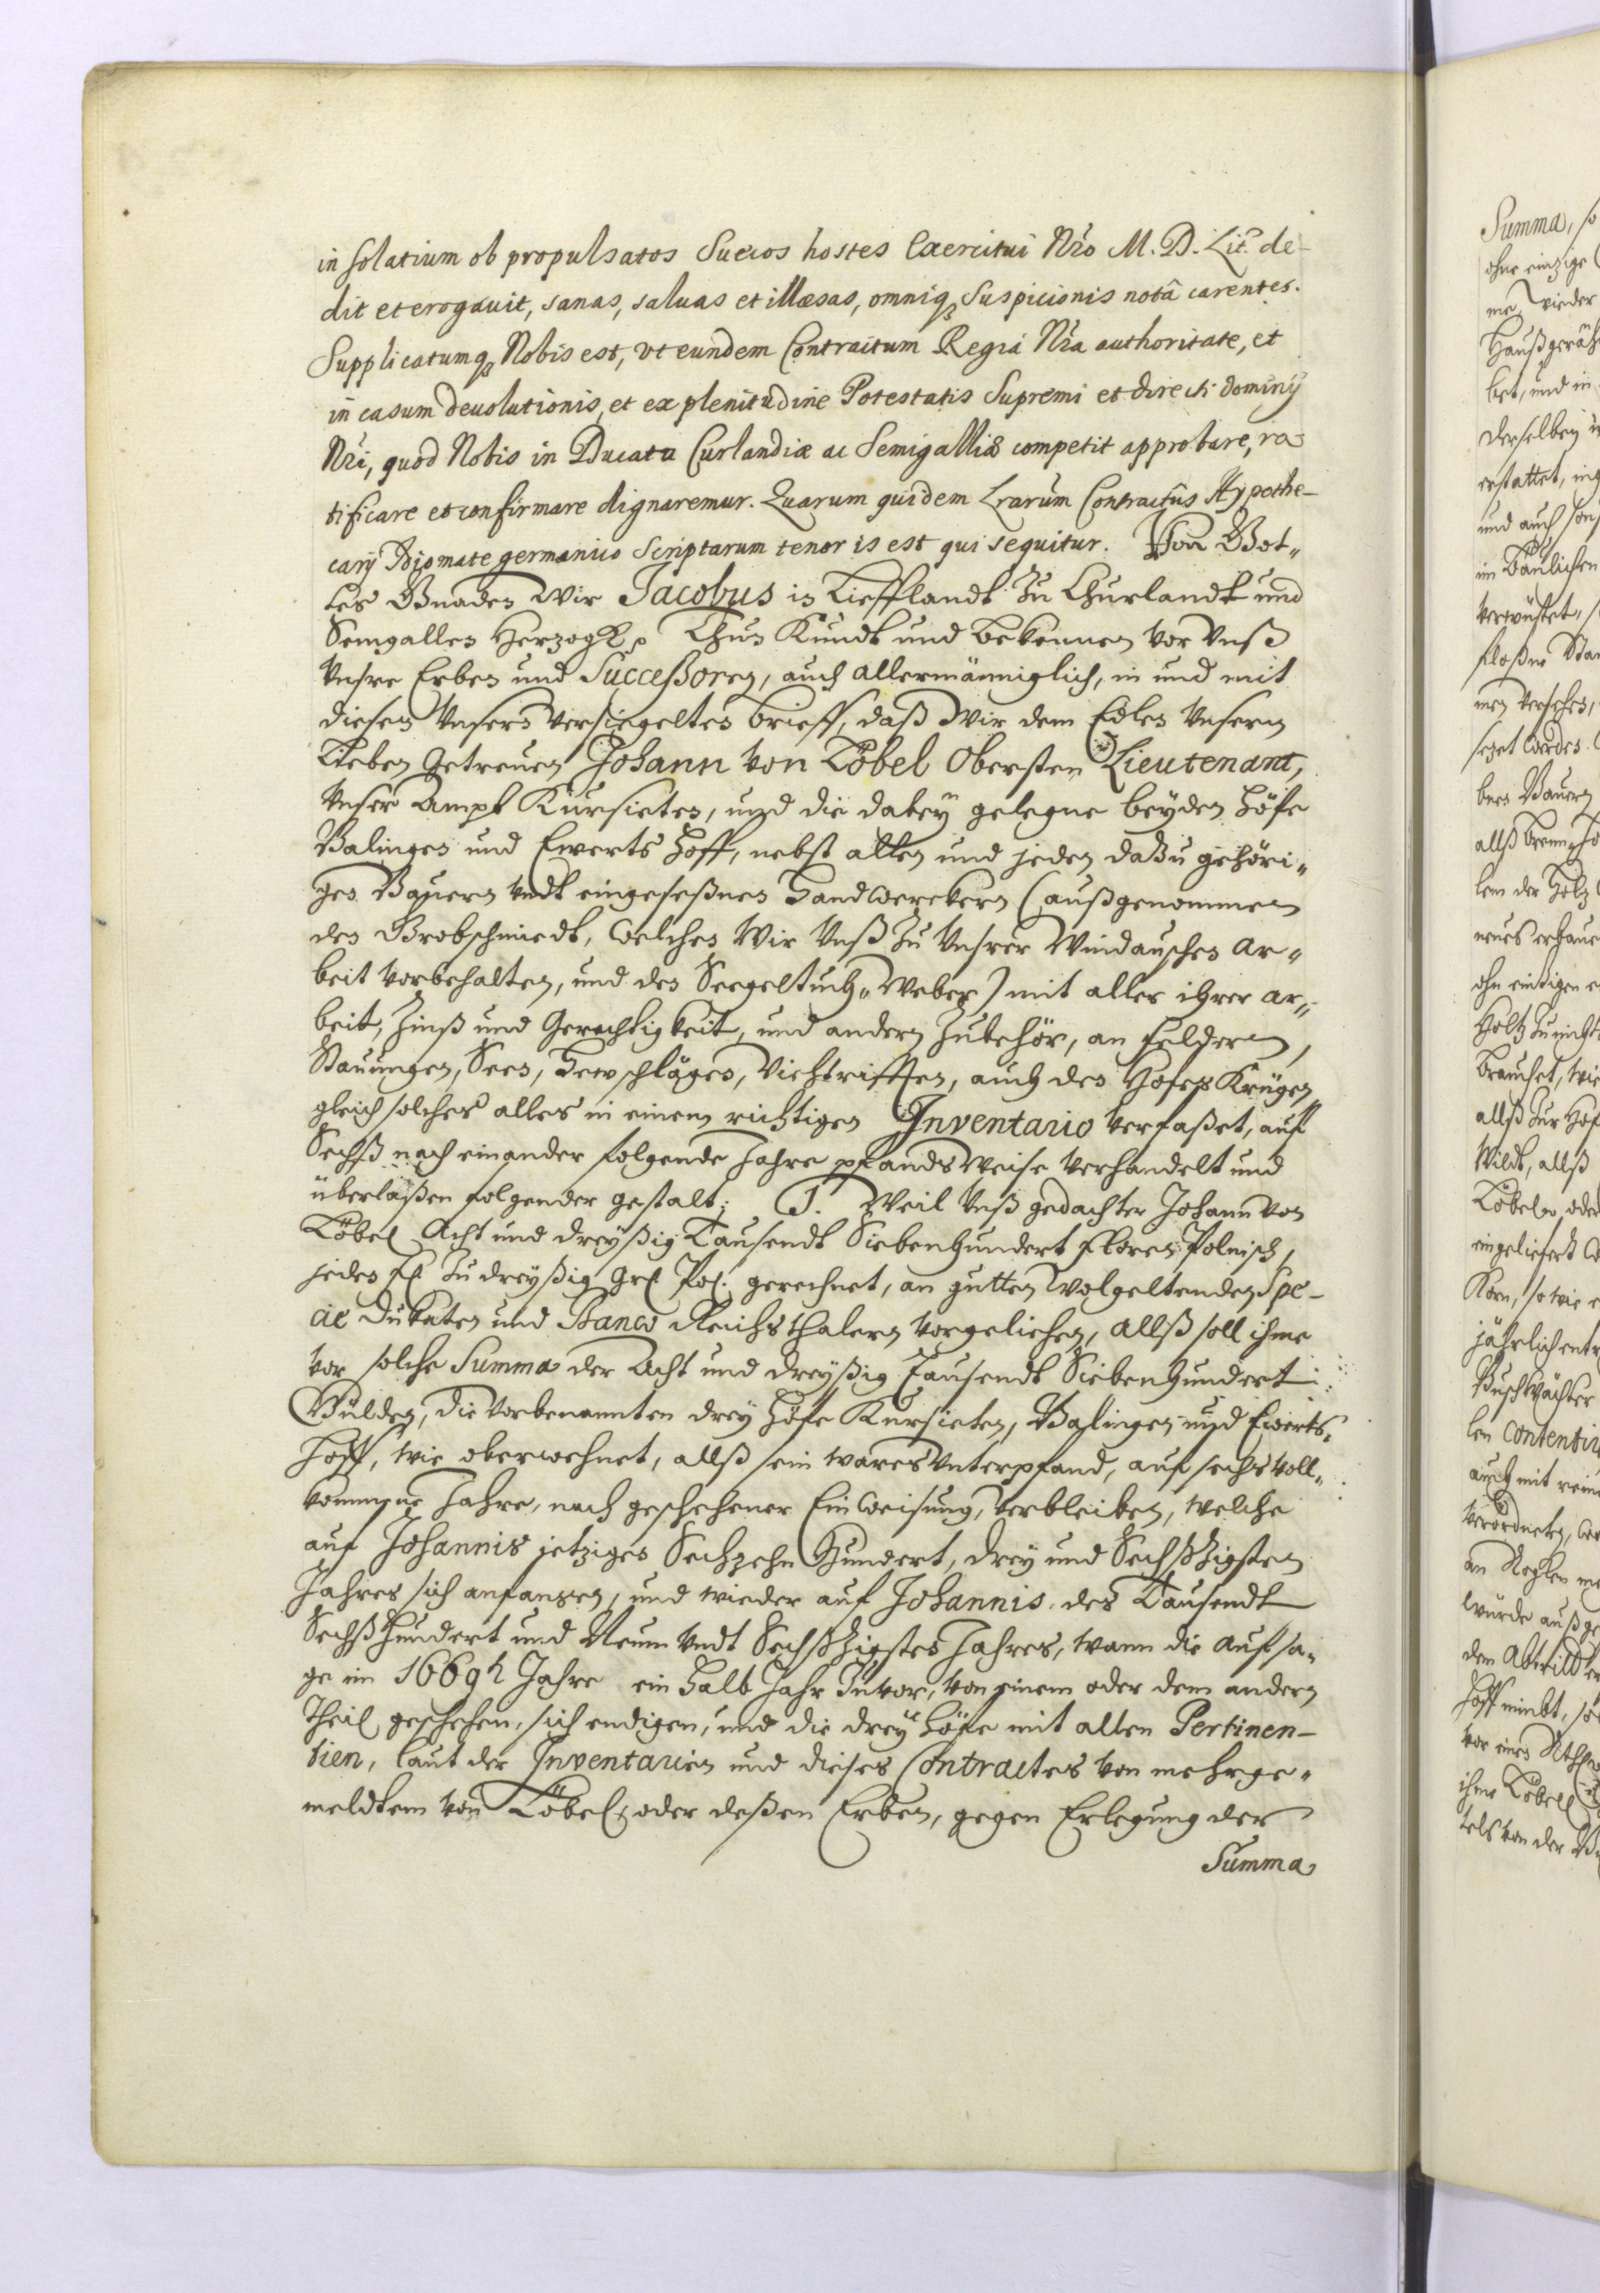 in solatium ob propulsatos Suecos hostes Exercitui Nro M. D. Lit. de-
dit et erogavit, sanas, saluas et illæsas, omniq; suspicionis notâ carentes.
Supplicatumq; Nobis est, vt eundem Contractum Regiâ Nrâ authoritate, et
in casum deuolutionis, et ex plenitudine Potestatis Supremi et directi dominij
Nri, quod Nobis in Ducatu Curlandiæ ac Semigalliæ competit approbare, ra-
tificare et confirmare dignaremur. Quarum quidem Lrarum Contractûs Hypothe-
carij Idiomate germanico scriptarum tenor is est qui sequitur. Von Got„
tes Gnaden Wir Jacobus in Liefflandt Zu Churlandt und
Semgallen Hertzogk Thun Kundt und bekennen vor Vnß
Vnsre Erben und Succeßoren, auch allermänniglich, in und mit
diesen Vnsern versiegelten brieff, daß Wir dem Edlen Vnsern
Lieben Getreuen Johann von Löbel Obersten Lieutenant,
Vnser Ampt Kursieten, und die dabey gelegne beyden Höfe
Balingen und Ewerts Hoff, nebst allen und jeden dazu gehöri„
gen Bauern vndt eingeseßnen Handwerckern (außgenommen
den Grobschmiedt, welchen Wir Vnß zu Vnsrer Windauschen Ar„
beit vorbehalten, und den Seegeltuch„Weber) mit aller ihrer ar„
beit, Zinß und Gerechtigkeit, und andern Zubehör, an feldern,
Stauungen, Seen, Hewschlägen, Viehtrifften, auch des Hofes Krügen
gleich solches alles in einem richtigen Inventario verfaßet, auf
Sechß nach einander folgende Jahre pfandsweise verhandelt und
überlaßen folgender gestalt: 1. Weil Vnß gedachter Johann von
Löbel Acht und dreyßig Tausendt Siebenhundert floren Polnisch,
jeden fl zu dreyßig grl Pol. gerechnet, an gutten wolgeltenden Spe-
cie Dukaten und Banco Reichsthalern vorgeliehen, allß soll ihme
vor solche Summa der Acht und dreyßig Tausendt Siebenhundert
Gulden, die vorbenannten drey Höfe Kursieten, Balingen und Ewerts„
Hoff, wie oberwehnet, allß sein wares Vnterpfand, auf sechs voll„
kommene Jahre, nach geschehener Einweisung, verbleiben, welche
auf Johannis jetziges Sechzehn Hundert, drey und Sechßzigsten
Jahres sich anfangen, und wieder auf Johannis des Tausendt
Sechßhundert und Neun vndt Sechßzigsten Jahres, wann die Aufsa„
ge im 1669t Jahre ein Halb Jahr Zuvor, von einem oder dem andern
Theil geschehen, sich endigen, und die drey Höfe mit allen Pertinen-
tien, laut der Inventarien und dieses Contractes von mehrge„
meldtem von Löbel, oder deßen Erben, gegen Erlegung der
Summa